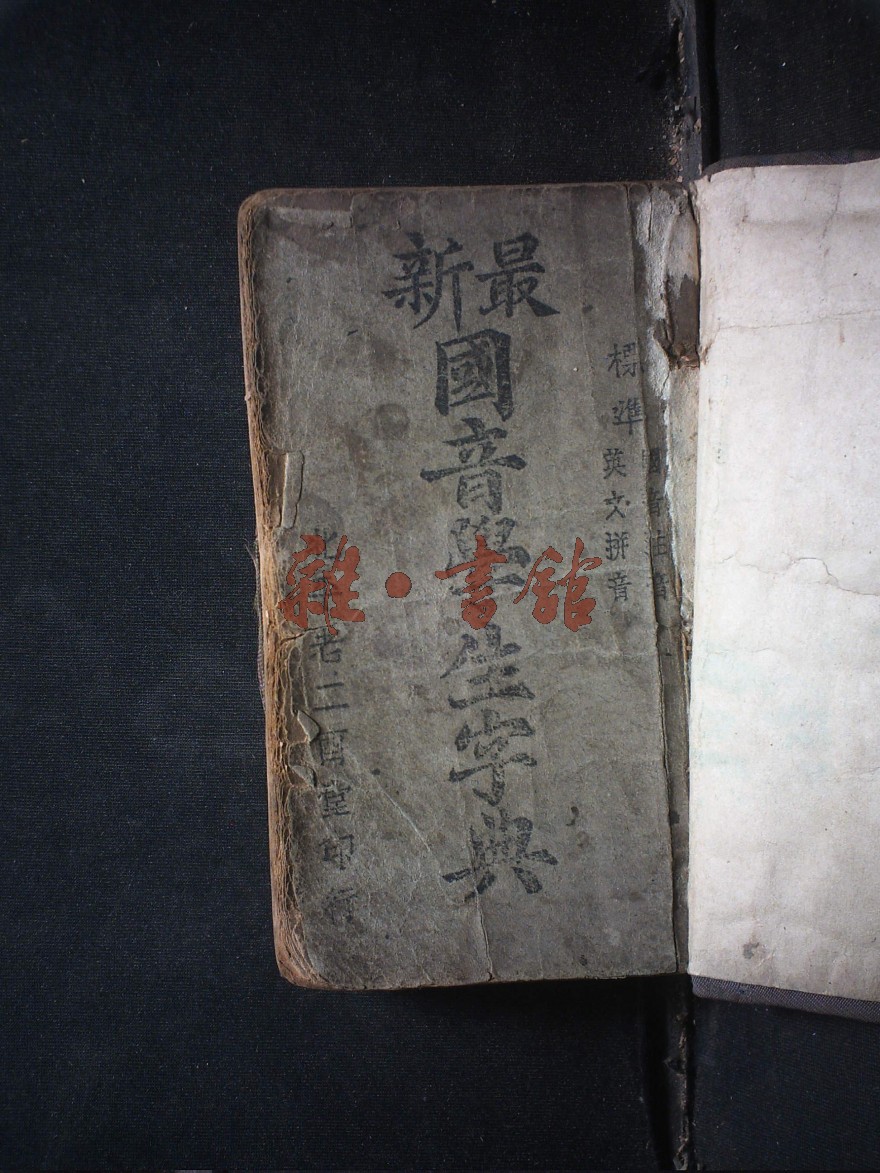 標準
國音注音
英文拼音
最新
國音學生字典
北平老二酉堂印行
雜·書館